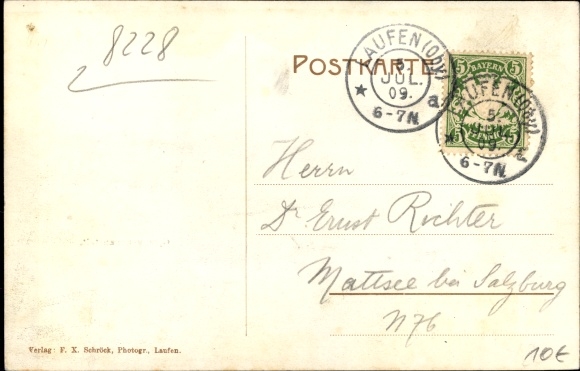 8228
POSTKARTE
LAUFEN(OBY)
5
JUL.
09.
6-7N.
a
5 BAYERN 5
LAUFEN(OBY)
5
JUL.
09.
6-7N.
a
Herrn
Dr Ernst Richter
Mattsee bei Salzburg
N76
Verlag: F. X. Schröck, Photogr., Laufen.
10€